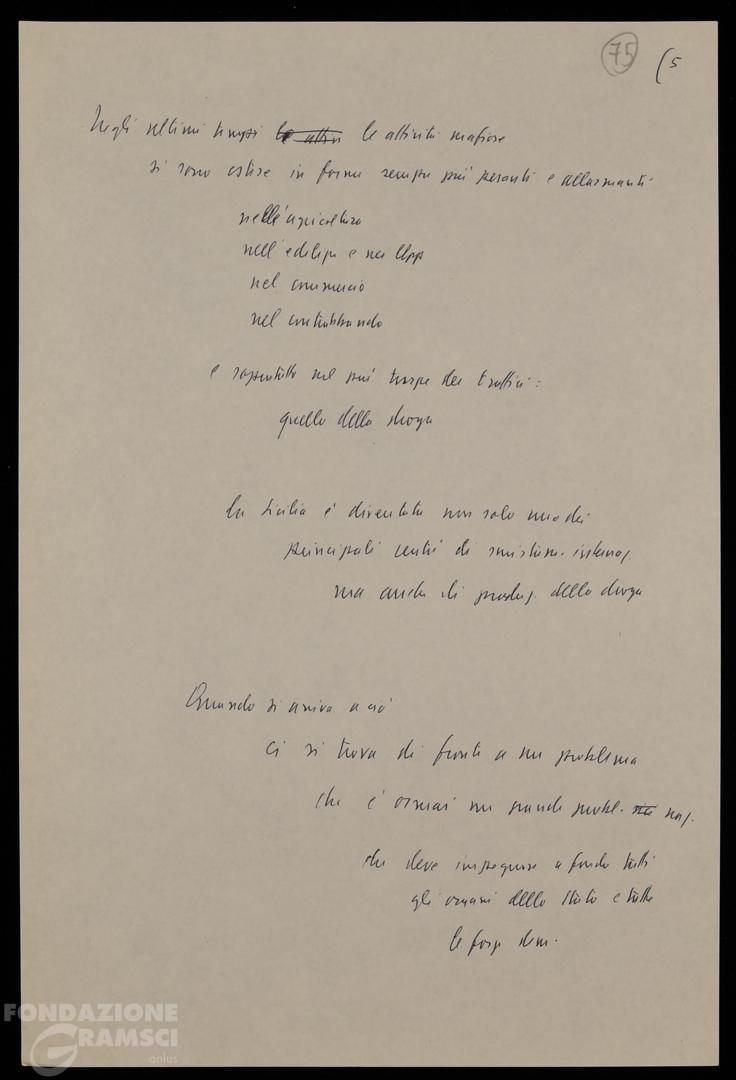 75 (5
Negli ultimi tempi le attiv le attività mafiose
si sono estese in forme sempre più pesanti e allarmanti
nell'agricoltura
nell'edilizia e nei llpp
nel commercio
nel contrabbando
e soprattutto nel più turpe dei traffici:
quello della droga
La Sicilia è diventata non solo uno dei
principali centri di smistam. internaz.
ma anche di produz. della droga
Quando si arriva a ciò
ci si trova di fronte a un problema
che è ormai un grande probl. naz.
che deve impegnare a fondo tutti
gli organi dello Stato e tutte
le forze dem.
FONDAZIONE
GRAMSCI
onlus